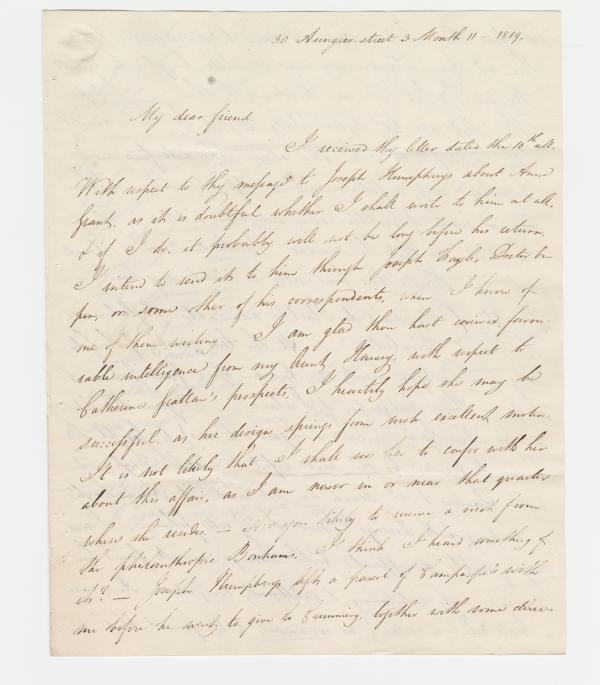 30 Aungier street 3 Month 11 - 1819.
My dear friend
I received thy letter dated the 10th ult.
With respect to thy message to Joseph Humphreys about Anne
Grant, as it is doubtful whether I shall write to him at all,
& if I do, it probably will not be long before his return,
I intend to send it to him through Joseph Doctor
or some other of his correspondents, when I know of
one of them writing - I am glad thou hast received favou-
rable intelligence from my Aunt Harvey, with respect to
Catherine Grattan's prospects. I heartily hope she may be
successful, as her design springs from such excellent motives
It is not likely that I shall see her to confer with her
about this affair, as I am never in or near that quarter
where she resides. - Are you likely to receive a visit from
the philanthropic Bonhams. I think I heard something of
it? - Joseph Humphreys left a parcel of with
me before he went, to give to together with some